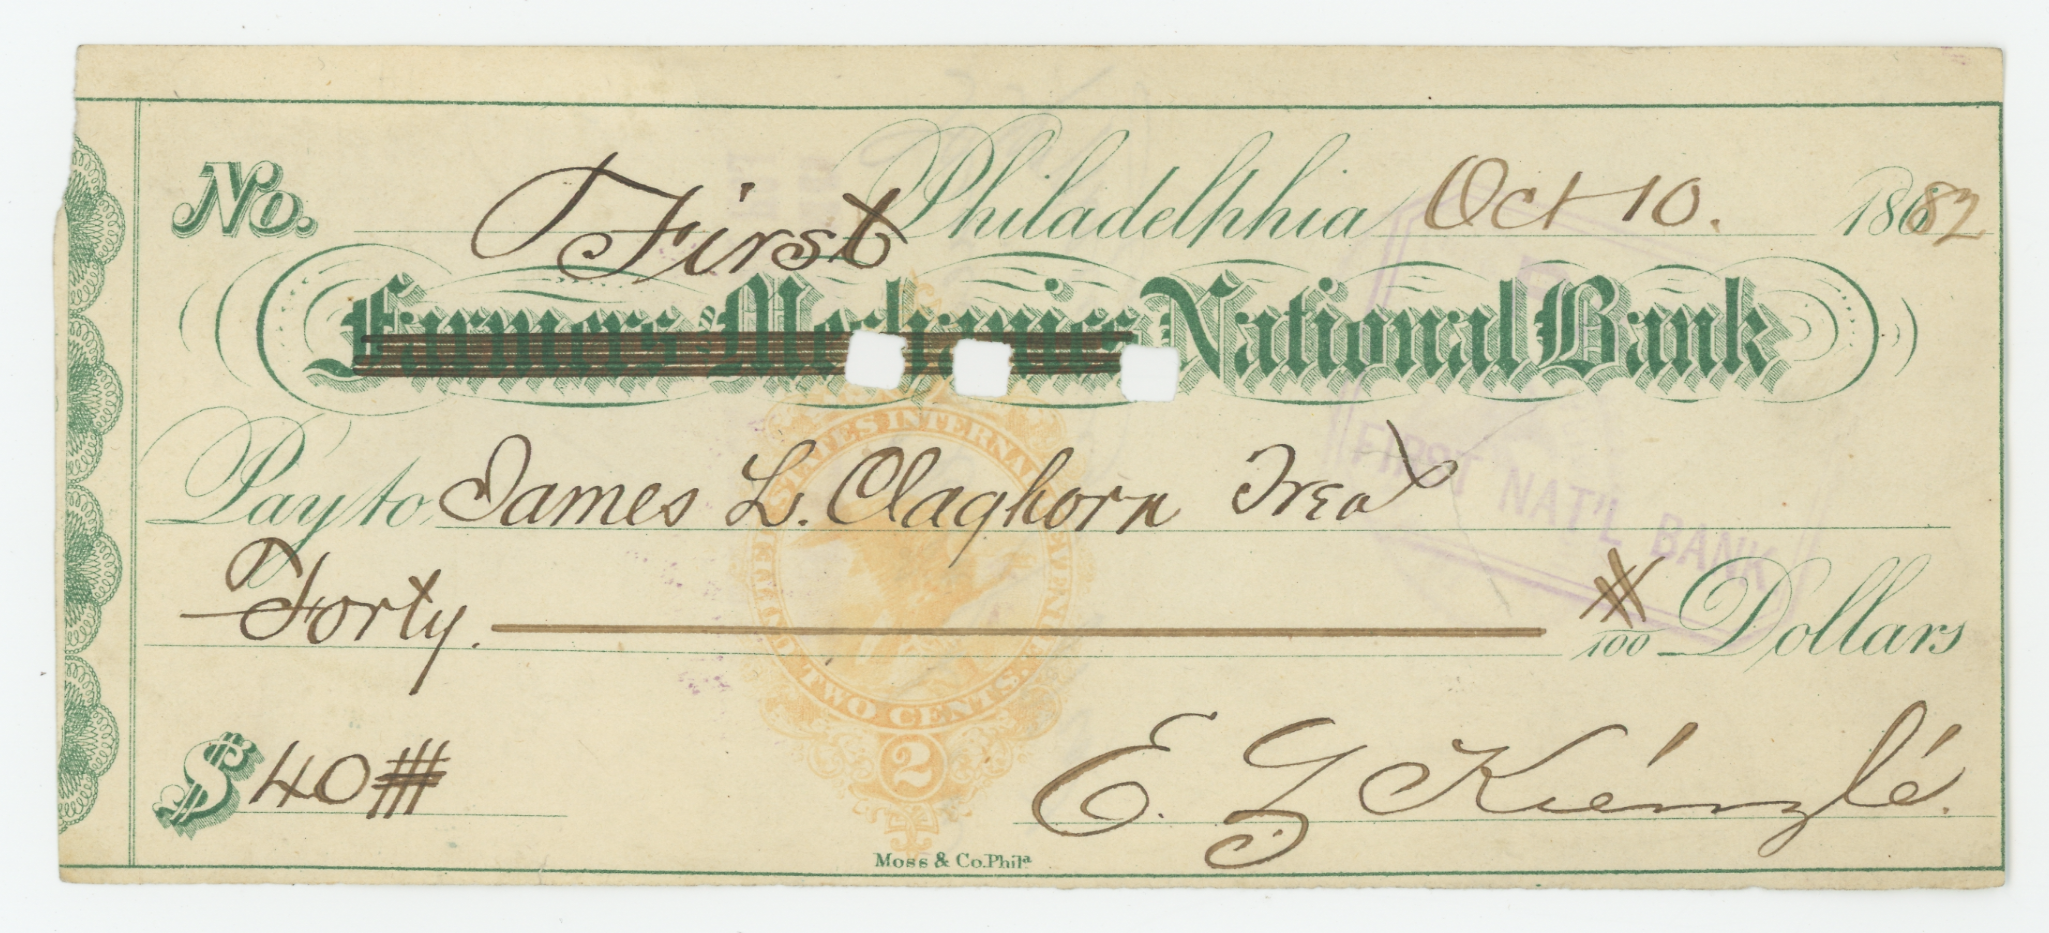 No. Philadelphia Oct 10. 18682
First
Farmers & Mechanics National Bank
Pay to James L. Claghorn Treas
Forty. /100 Dollars
$ 40
E. G. Kiénzlé.
UNITED STATES INTERNAL REVENUE
TWO CENTS.
2
FIRST NAT'L BANK
Moss & Co. Phila